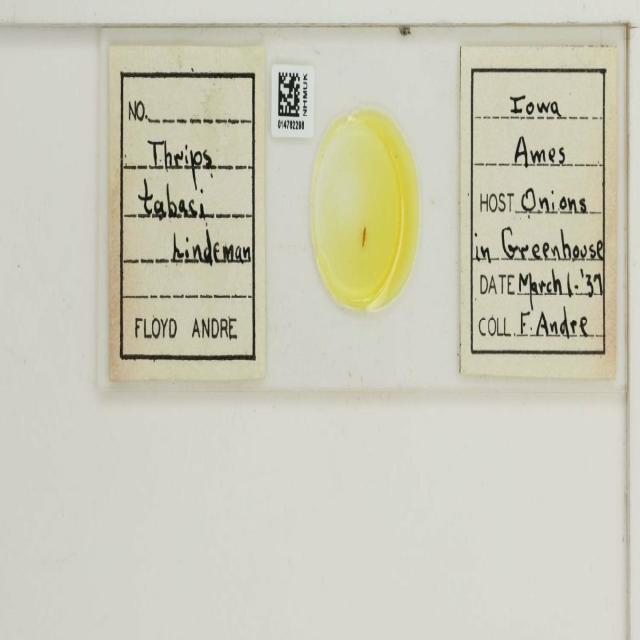 NO.
Thrips
tabaci
Lindeman
FLOYD ANDRE
NHMUK
014782298
Iowa
Ames
HOST Onions
in Greenhouse
DATE March 1-'37
COLL. F. Andre